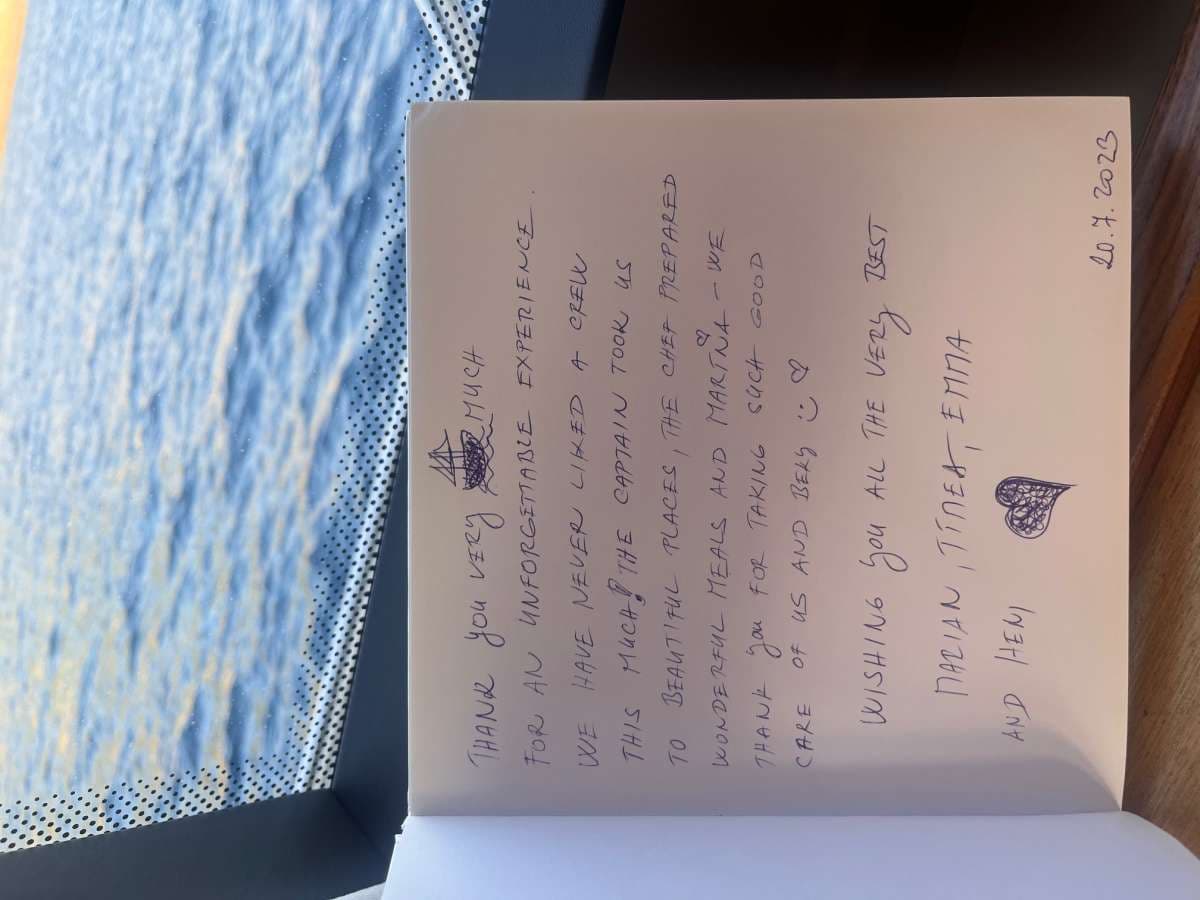 THANK YOU VERY MUCH
FOR AN UNFORGETTABLE EXPERIENCE.
WE HAVE NEVER LIKED A CREW
THIS MUCH! THE CAPTAIN TOOK US
TO BEAUTIFUL PLACES, THE CHEF PREPARED
WONDERFUL MEALS AND MARTNA – WE
THANK YOU FOR TAKING SUCH GOOD
CARE OF US AND BEKY :) ♡
WISHING YOU ALL THE VERY BEST
MARIAN, TIMEA, EMMA
AND HENY
20.7.2023